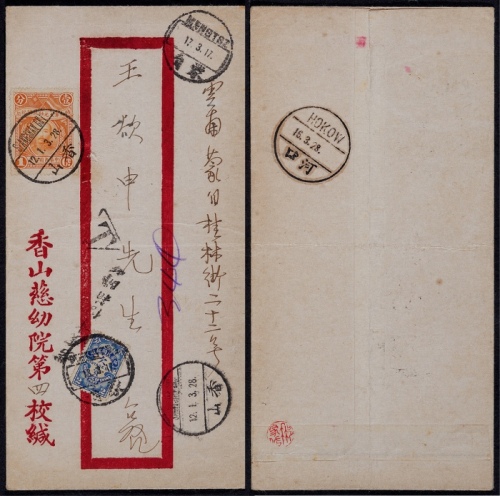 MENGTSZ
17.3.17.
自蒙
雲南蒙自桂林街二十二号
王欲申先生
香山慈幼院第四校緘
分壹
12.1.3.28.
山香
T
12.1.3.28.
山香
HOKOW
16.3.28.
口河